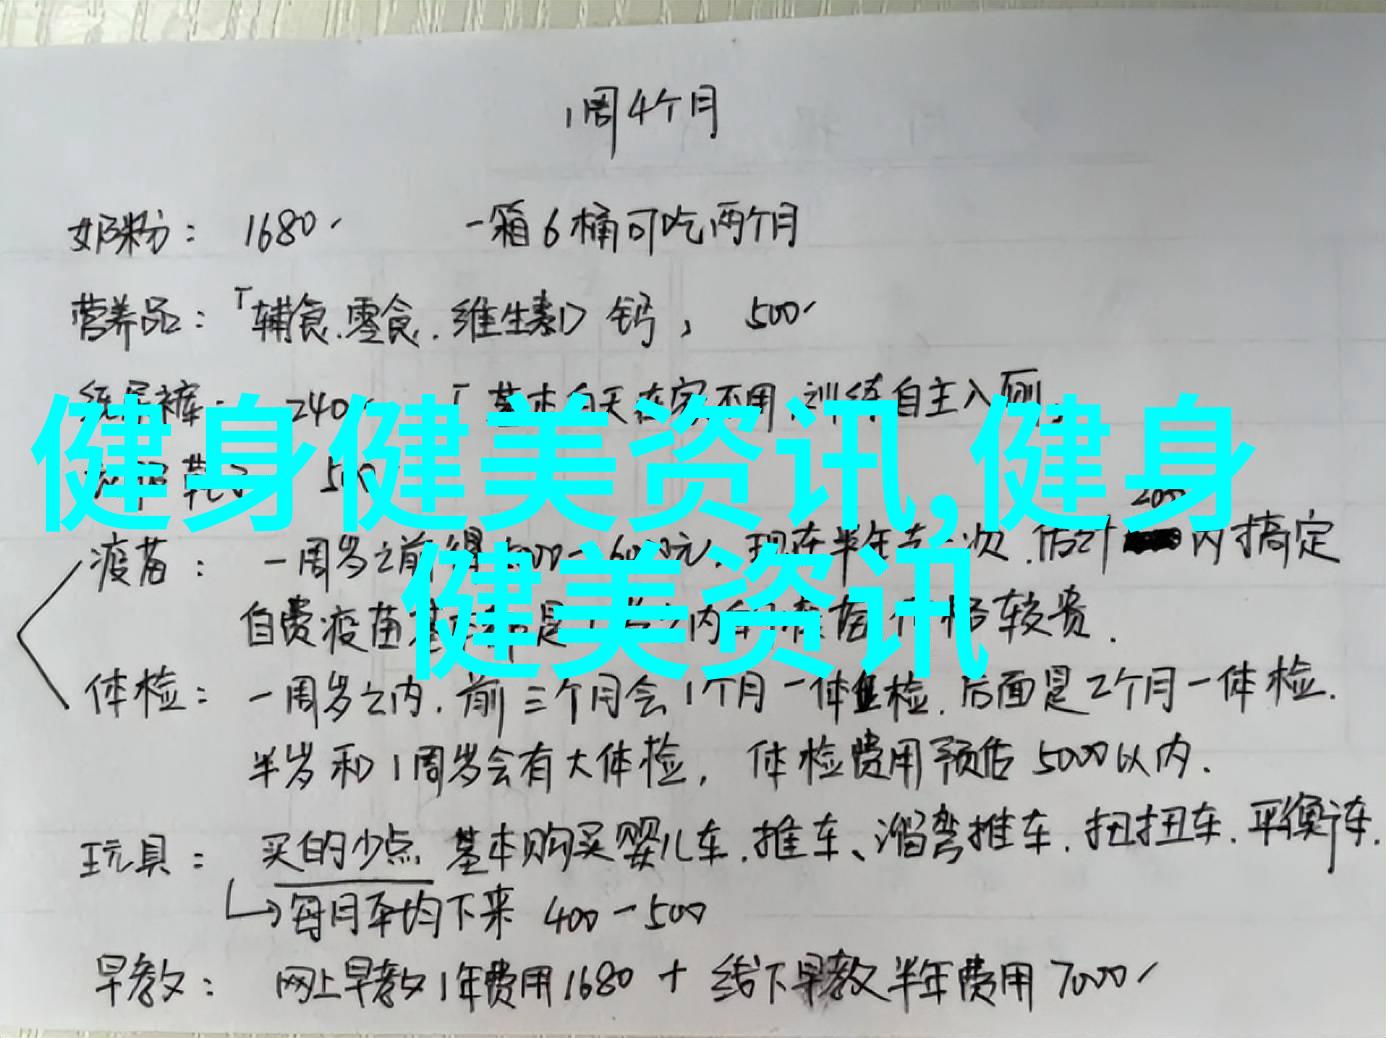 1周4个月
奶粉： 1680 一箱6桶可吃两个月
营养品：「辅食.零食.维生素D 钙， 500
纸尿裤： 240 「基本白天在家不用,训练自主入厕.
50
健身健美资讯,健身
健美资讯
200
疫苗： 一周岁之前 6000元. 现在半年 次.估计 内搞定
自费疫苗 是 内 疫苗 较贵.
体检： 一周岁之内.前三个月会1个月一体检.后面是2个月一体检.
半岁和1周岁会有大体检, 体检费用预估5000以内.
玩具： 买的少点 基本购买婴儿车.推车、溜弯推车.扭扭车.平衡车.
每月平均下来 400-500
早教： 网上早教1年费用1680 + 线下早教半年费用7000